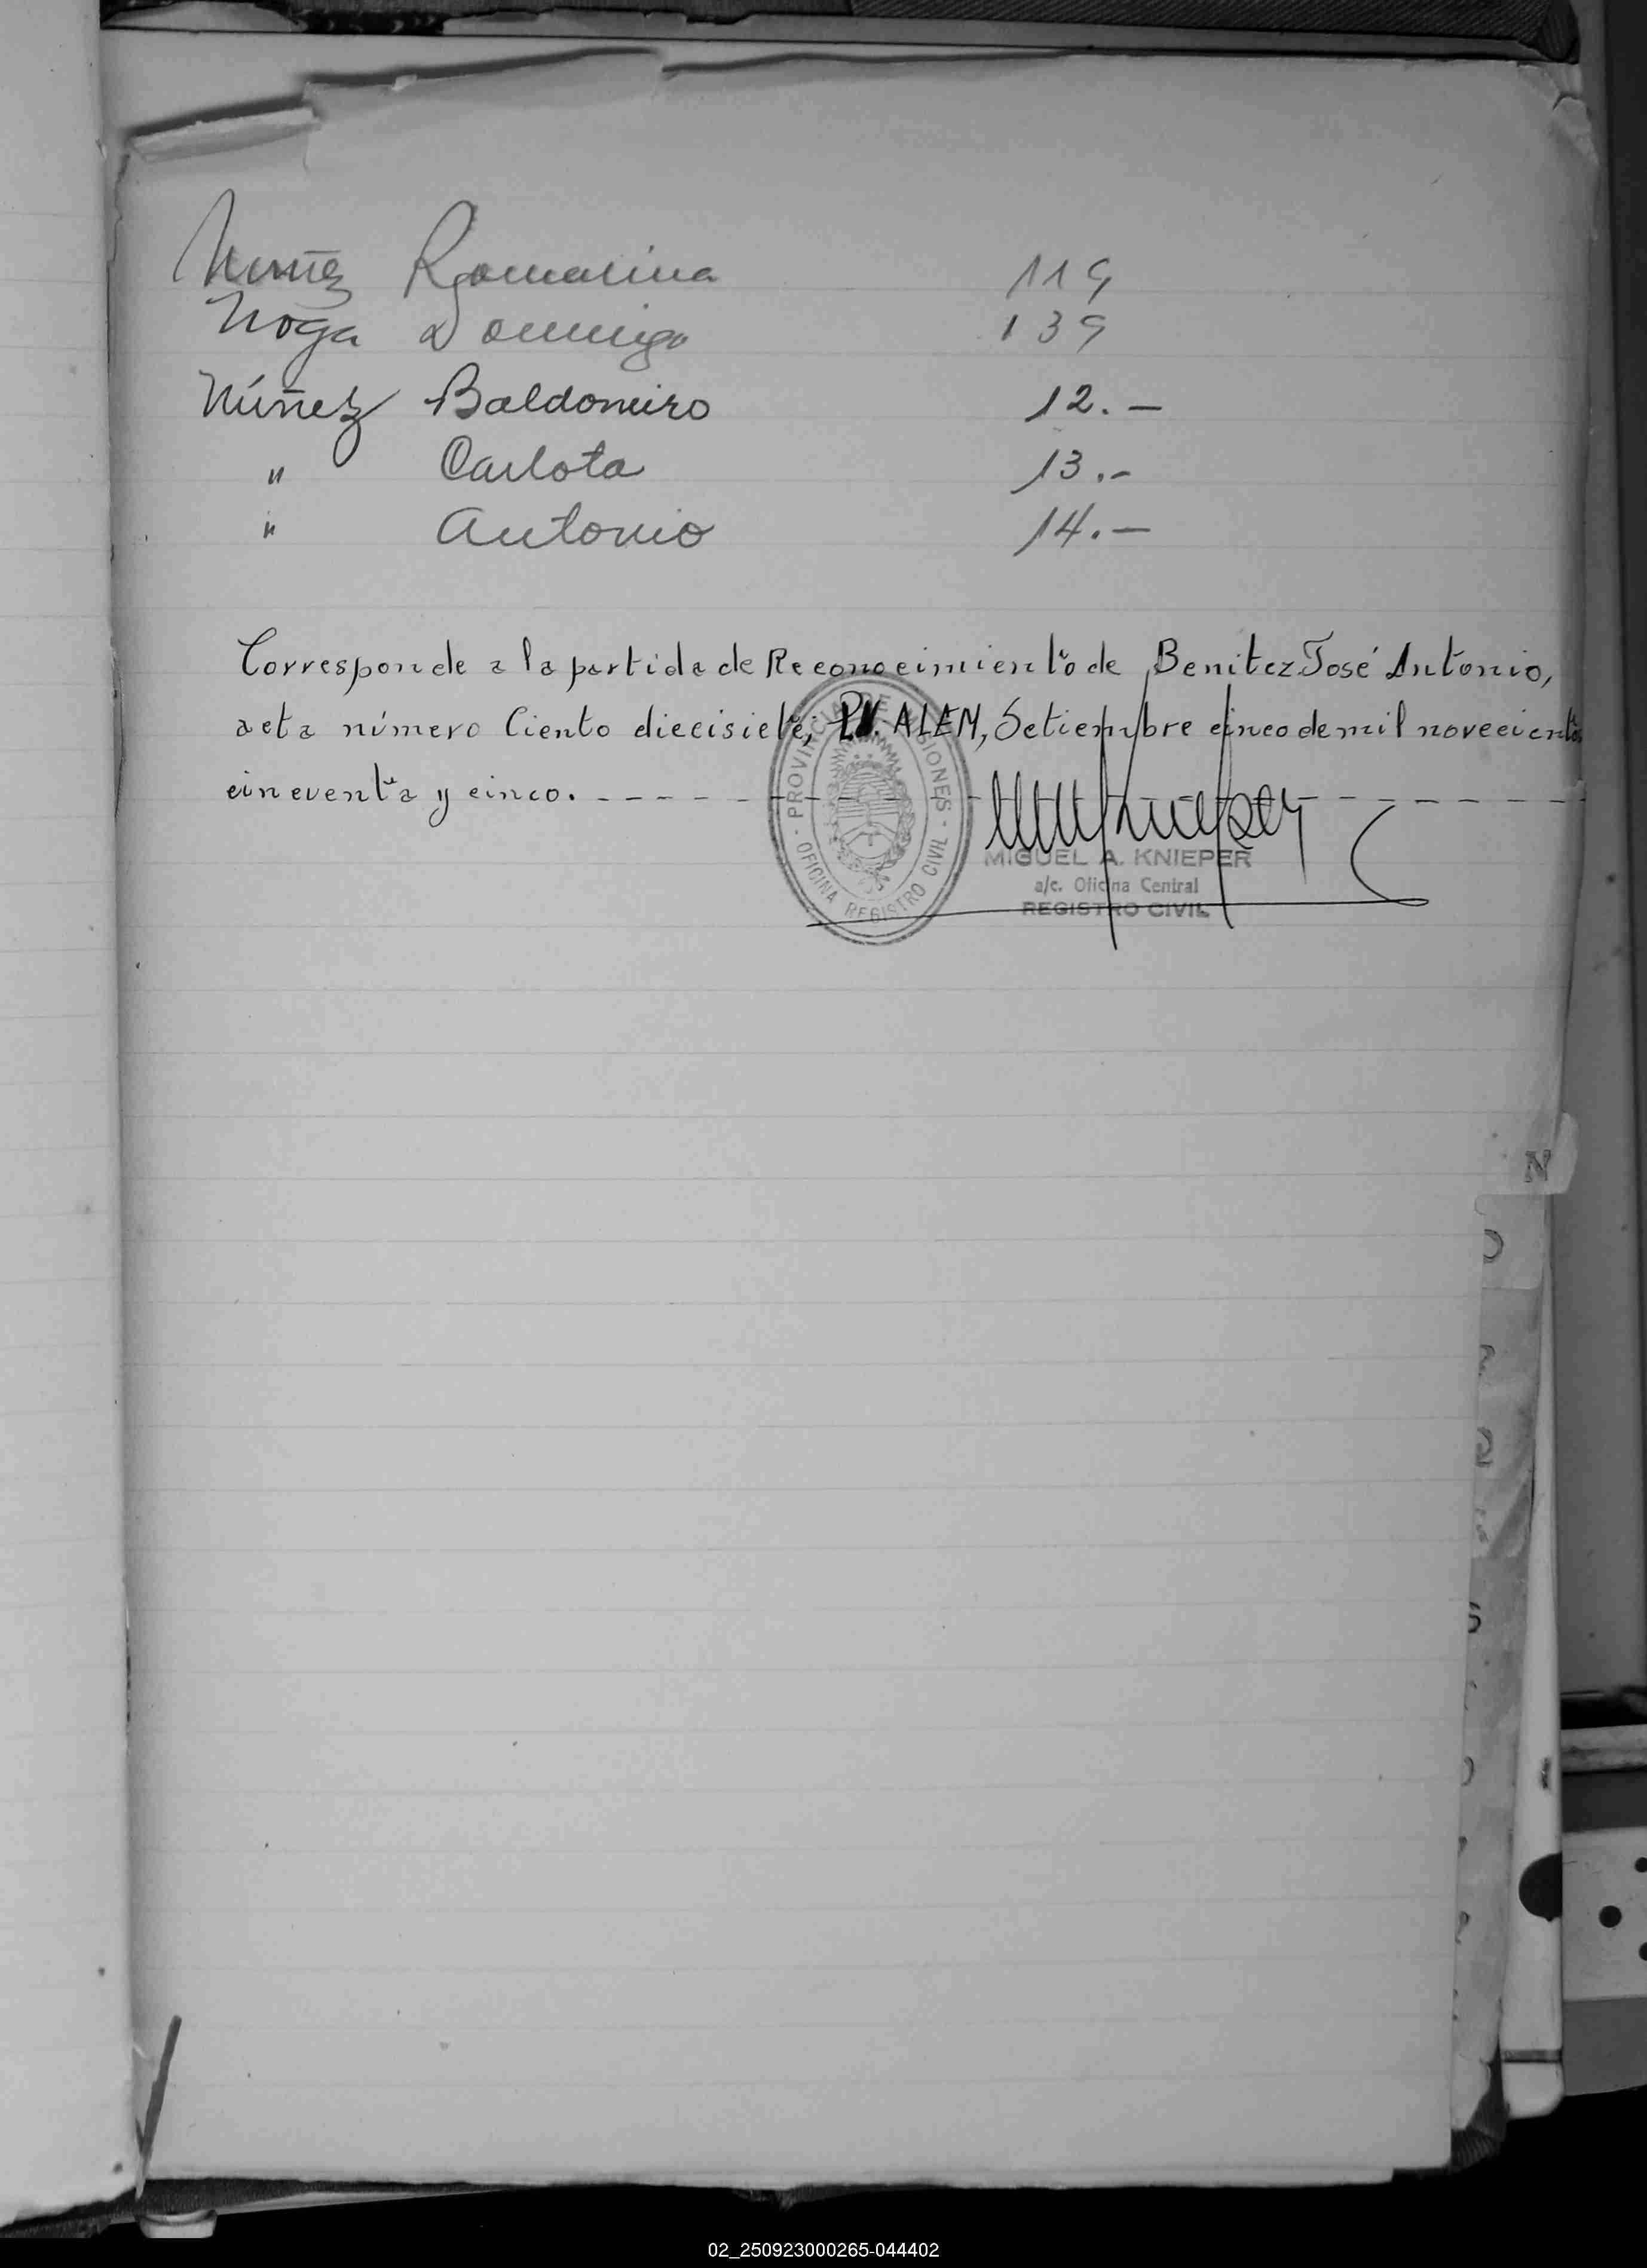 Nuñez Romualina 119
Noga Domingo 139
Núñez Baldomero 12.-
" Carlota 13.-
" Antonio 14.-
Corresponde a la partida de Reconocimiento de Benitez José Antonio,
acta número Ciento diecisiete; L.N. ALEM, Setiembre cinco de mil novecientos
cincuenta y cinco. - - - - - - - - - -
PROVINCIA DE MISIONES
- OFICINA REGISTRO CIVIL -
MIGUEL A. KNIEPER
a/c. Oficina Central
REGISTRO CIVIL
N
O
P
R
S
02_250923000265-044402